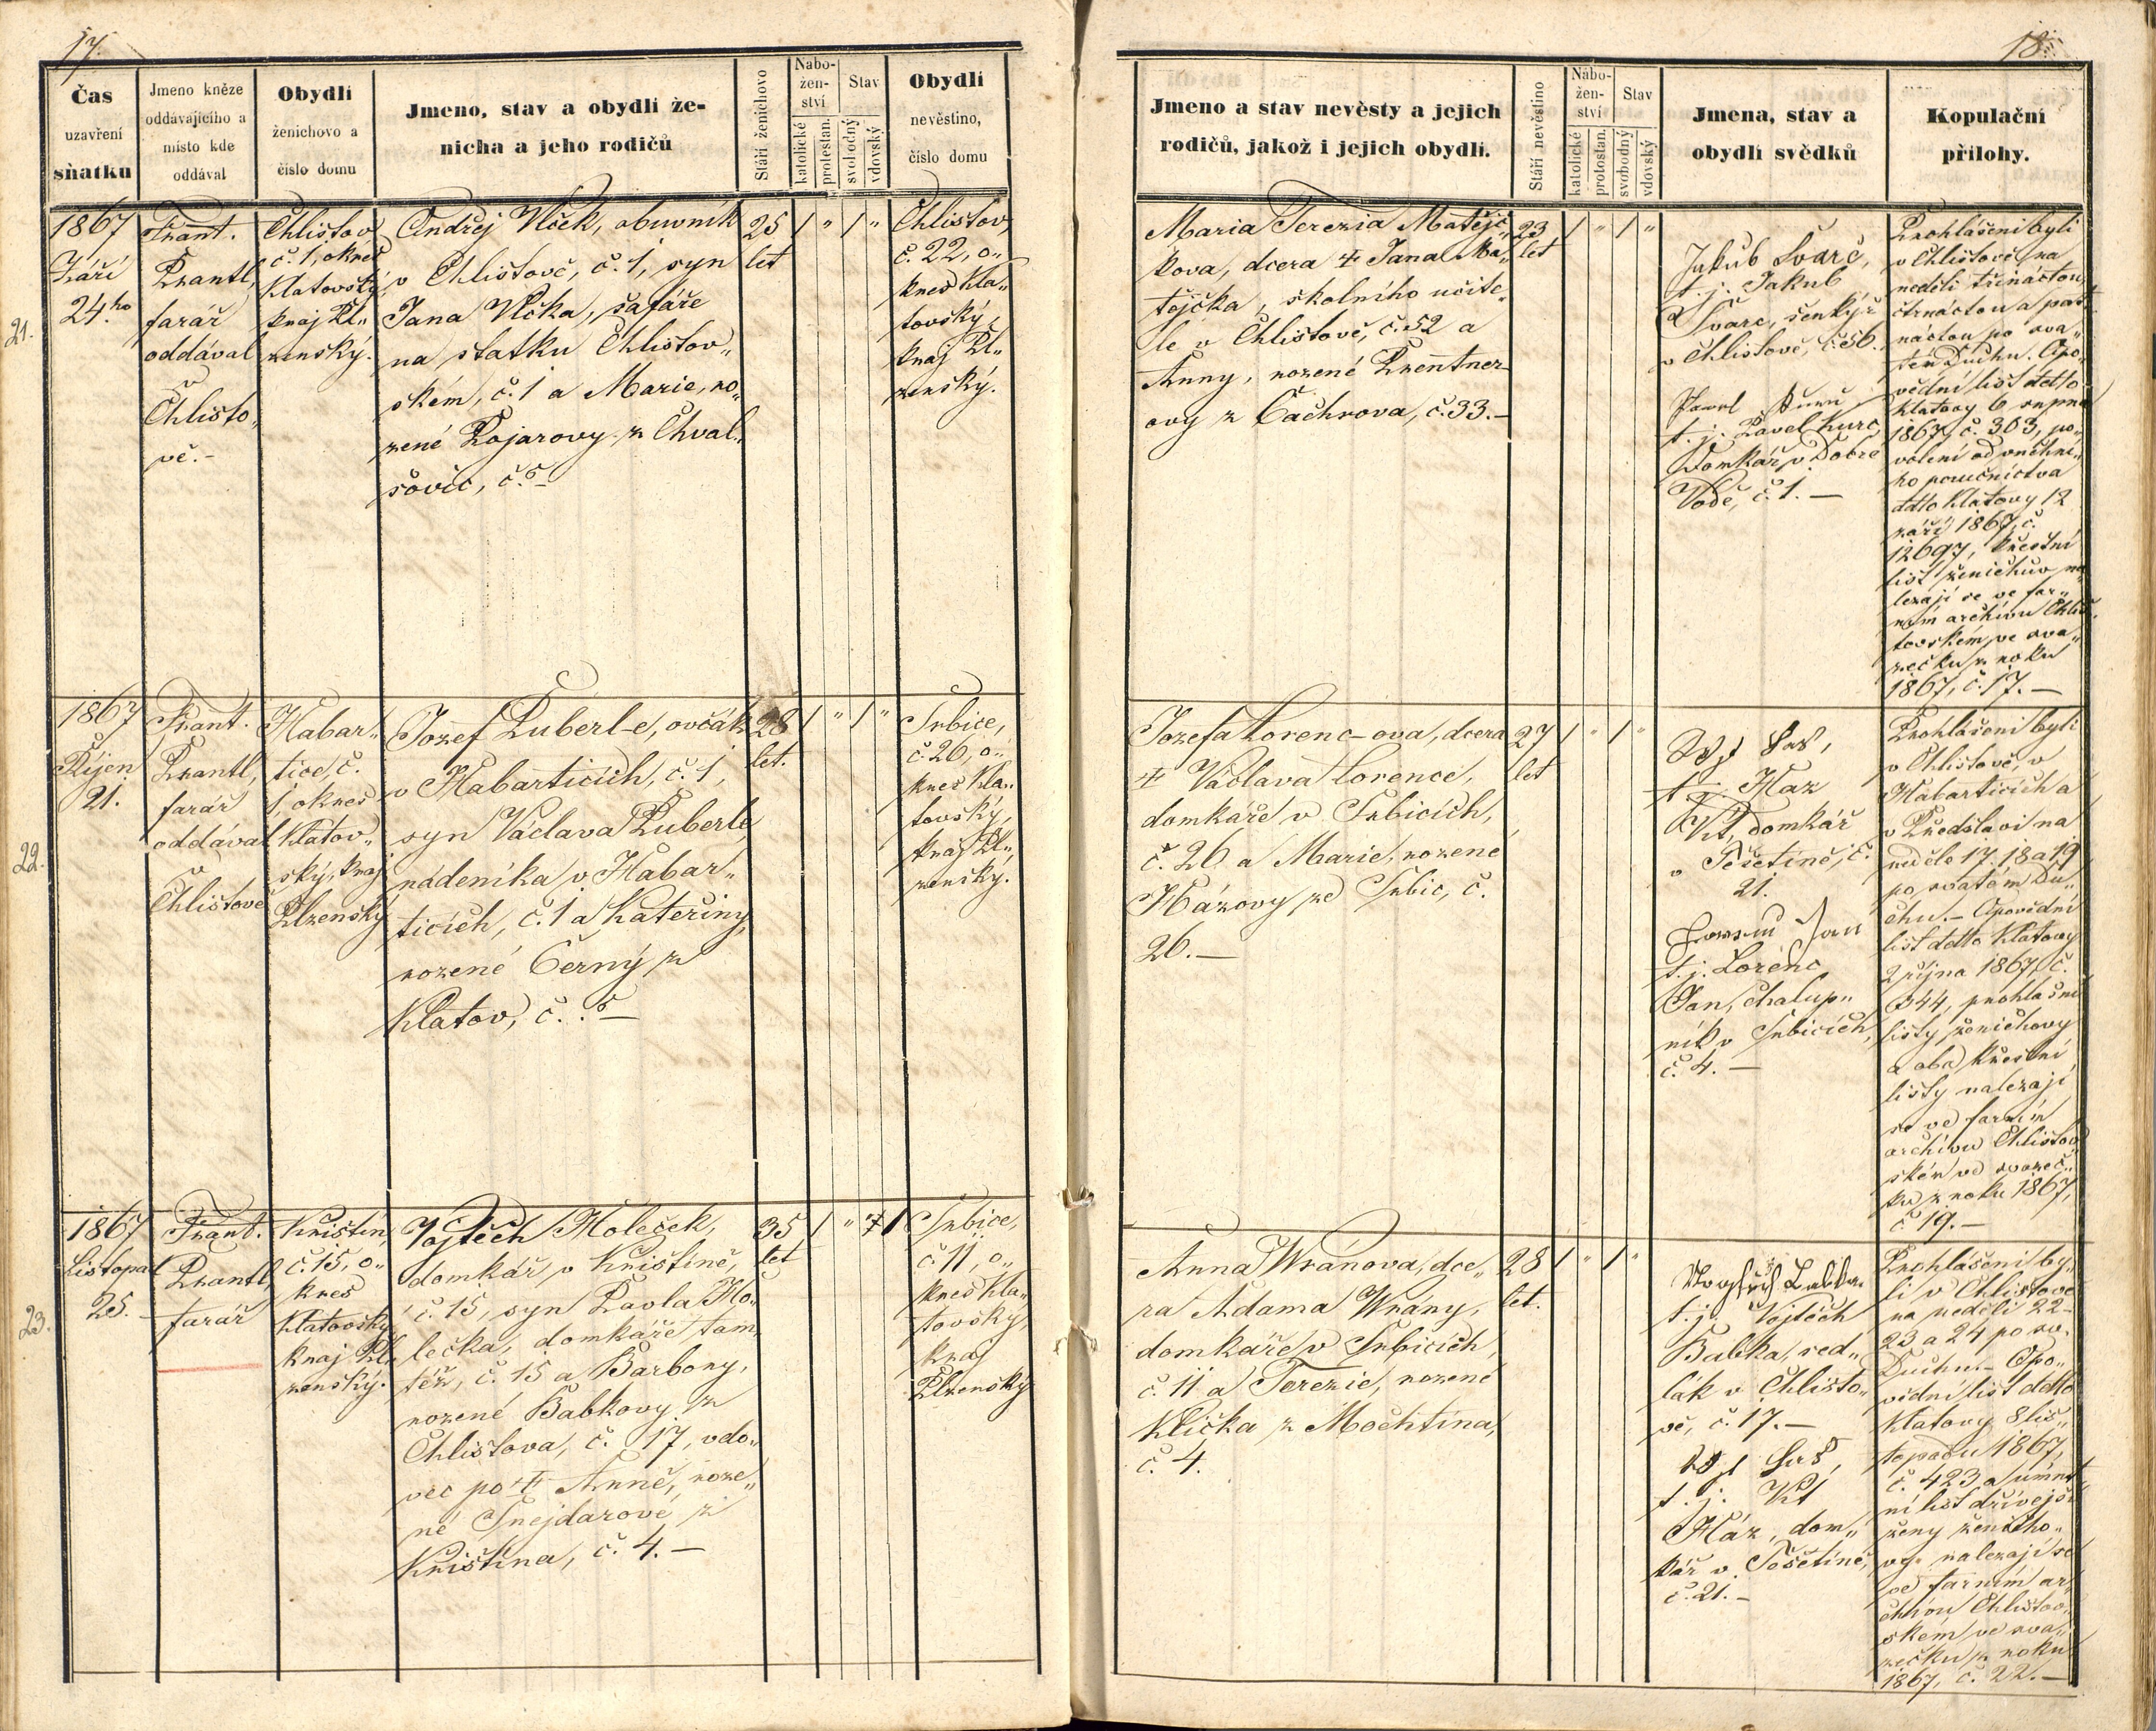 17.
Čas
uzavření
sňatku
Jmeno kněze
oddávajícího a
místo kde
oddával
Obydlí
ženichovo a
číslo domu
Jmeno, stav a obydlí že-
nicha a jeho rodičů
Stáří ženichovo
Nábo-
žen-
ství
katolické
protestan.
Stav
svobodný
vdovský
Obydlí
nevěstino,
číslo domu
21.
1867
Září
24.ho
Frant.
Prantl,
farář
oddával
v
Chlisto„
vě.-
Chlistov
č. 1, okres
Klatovský,
kraj Pl„
zenský.
Ondřej Vlček, obuvník
v Chlistově, č. 1, syn
Jana Vlčka, šafáře
na statku Chlistov„
ském, č. 1 a Marie, ro„
zené Pojarovy z Chval„
šovic, č. 5 –
25
let
1 „ 1 „
Chlistov,
č. 22, o„
kres Kla„
tovský,
kraj Pl„
zenský.
22.
1867
Říjen
21.
Frant.
Prantl,
farář
oddával
v
Chlistově
Habar„
tice, č.
1, okres
Klatov„
ský, kraj
Plzenský
Jozef Puberl-e, ovčák
v Habarticích, č. 1,
syn Václava Puberle
nádeníka v Habar„
ticích, č. 1 a Kateřiny,
rozené Černý z
Klatov, č. 5 –
28
let.
1 „ 1 „
Srbice,
č. 26, o„
kres Kla„
tovský,
kraj Pl„
zenský.
23.
1867
Listopad
25.
Frant.
Prantl,
farář
Kristin,
č. 15, o„
kres
Klatovský
kraj Pl„
zenský.
Vojtěch Holeček,
domkář v Kristině,
č. 15, syn Pavla Ho„
lečka, domkáře tam„
též, č. 15 a Barbory,
rozené Babkovy z
Chlistova, č. 17, vdo„
vec po † Anně, roze„
né Šnejdarové z
Kristina, č. 4. –
35
let
1 „ 1
Srbice,
č. 11, o„
kres Kla„
tovský,
kraj
Plzenský
18.
Jmeno a stav nevěsty a jejich
rodičů, jakož i jejich obydlí.
Stáří nevěstino
Nábo-
žen-
ství
katolické
protestan.
Stav
svobodný
vdovský
Jmena, stav a
obydlí svědků
Kopulační
přílohy.
Maria Terezia Matějč„
kova, dcera † Jana Ma„
tějčka, školního učite„
le v Chlistově, č. 52 a
Anny, rozené Prentner-
ovy z Čachrova, č. 33. –
23
let
1 „ 1 „
Jakub Švarc,
t. j. Jakub
Švarc, šenkýř
v Chlistově, č. 56.
t. j. Pavel Kurc,
Domkář v Dobré
Vodě, č. 1. –
Prohlášeni byli
v Chlistově na
neděli třináctou,
čtrnáctou a pat„
náctou po sva„
tém Duchu. Opo„
vědní list ddto
Klatovy 6 srpna
1867, č. 303, po„
volení od vrchní„
ho poručnictva
ddto Klatovy 12
září 1867, č.
12697, křestní
list ženichův na„
lezají se ve far„
ním archivu Chlis„
tovském ve sva„
zečku z roku
1867, č. 17. –
Jozefa Lorenc-ova, dcera
† Václava Lorence,
domkáře v Srbicích,
č. 26 a Marie, rozené
Házovy ze Srbic, č.
26. –
27
let
1 „ 1 „
t. j. Haz
Vít, domkář
v Těšetíně, č.
21.
Jan
t. j. Lorenc
Jan, chalup„
ník v Srbicích,
č. 4. –
Prohlášeni byli
v Chlistově, v
Habarticích a
v Předslavi na
neděle 17. 18 a 19
po svatém Du„
chu. – Opovědní
list ddto Klatovy
2 října 1867, č.
344, prohlašní
listy ženichovy
a oba křestní
listy nalezají
se ve farním
archivu Chlistov
ském ve svazeč„
ku z roku 1867,
č 19. –
Anna Wránova, dce„
ra Adama Wrány,
domkáře v Srbicích,
č. 11 a Terezie, rozené
Klička z Mochtina,
č. 4.
28
let.
1 „ 1 „
t. j. Vojtěch
Babka, sed„
lák v Chlisto„
vě, č. 17. –
t. j. Vít
Ház, dom„
kář v Těšetíně,
č. 21. –
Prohlášeni by„
li v Chlistově
na neděli 22-
23 a 24 po sv.
Duchu. – Opo„
vědní list ddto
Klatovy 8 lis„
topadu 1867,
č. 423 a úmrt„
ní list dřívější
ženy ženicho„
vy nalezají se
ve farním ar„
chivu Chlistov„
ském ve sva„
zečku z roku
1867, č. 22. –